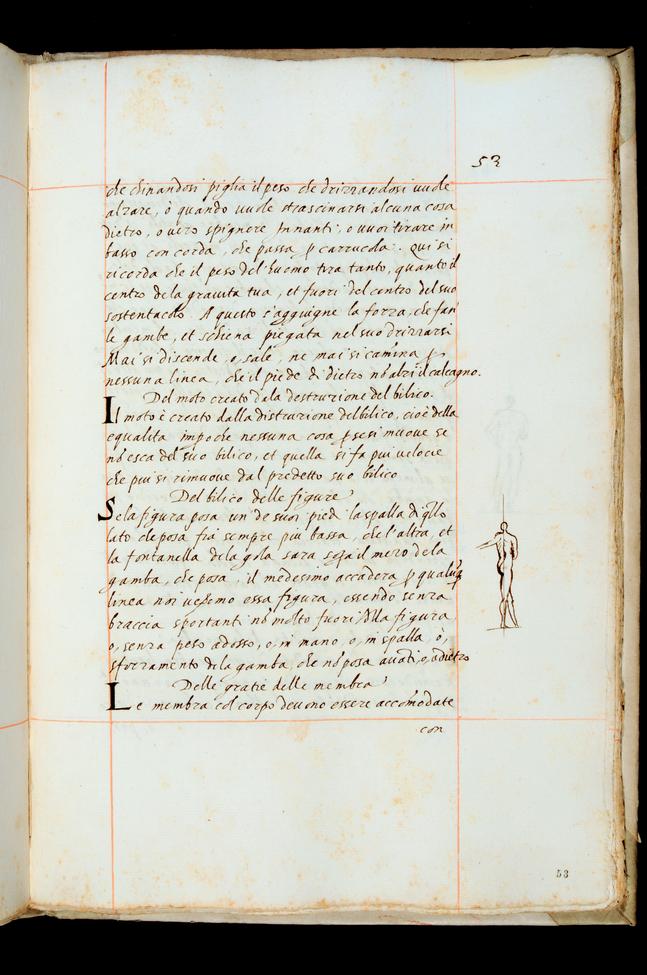 53
che chinandosi piglia il peso che drizzandosi vuole
alzare, ò quando vuole strascinarsi alcuna cosa
dietro, o vero spignere innanti, o vuoi tirare in
basso con corda, che passa p carrucola. Qui si
ricorda che il peso del huomo tira tanto, quanto il
centro dela gravita sua, et fuori del centro del suo
sostentacolo. A questo s'aggiugne la forza, che fan
le gambe, et schiena piegata nel suo drizzarsi
Mai si discende, o sale, ne mai si camina p
nessuna linea, che il piede di dietro nō alzi il calcagno.
Del moto creato dala destruzione del bilico.
Il moto è creato dalla distruzione del bilico, cioè della
equalita impoche nessuna cosa p se si muove se
nō esca del suo bilico, et quella si fa piu veloce
che piu si rimuove dal predetto suo bilico
Del bilico delle figure
Se la figura posa un de suoi piedi la spalla di qllo
lato che posa fia sempre piu bassa, che l'altra, et
la fontanella dela gola sara sopa il mezo dela
gamba, che posa, il medesimo accadera p qualuq
linea noi vedemo essa figura, essendo senza
braccia sportanti nō molto fuori della figura
o, senza peso adosso, o, in mano, o, in spalla, ò,
sforzamento dela gamba, che nō posa auāti, o, adietro
Delle gratie delle membra
Le membra col corpo devono essere accōmodate
con
53